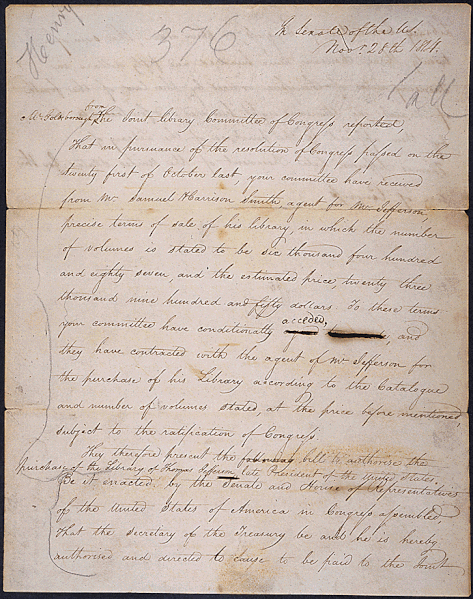 Henry
376
In Senate of the U.S.
Novr. 28th 1814.
all
Mr Goldsborough from The Joint Library Committee of Congress reported,
That in pursuance of the resolution of Congress passed on the
twenty first of October last, your committee have received
from Mr Samuel Harrison Smith, agent for Mr Jefferson,
precise terms of sale of his library, in which the number
of volumes is stated to be six thousand four hundred
and eighty seven and the estimated price twenty three
thousand nine hundred and fifty dollars. To these terms
your committee have conditionally acceded, and
they have contracted with the agent of Mr Jefferson for
the purchase of his Library according to the Catalogue
and number of volumes stated, at the price before mentioned,
subject to the ratification of Congress.
They therefore present the bill to authorise the
purchase of the Library of Thomas Jefferson, late President of the United States
Be it enacted by the Senate and House of Representatives
of the United States of America in Congress assembled,
That the secretary of the Treasury be and he is hereby
authorised and directed to cause to be paid to the Joint